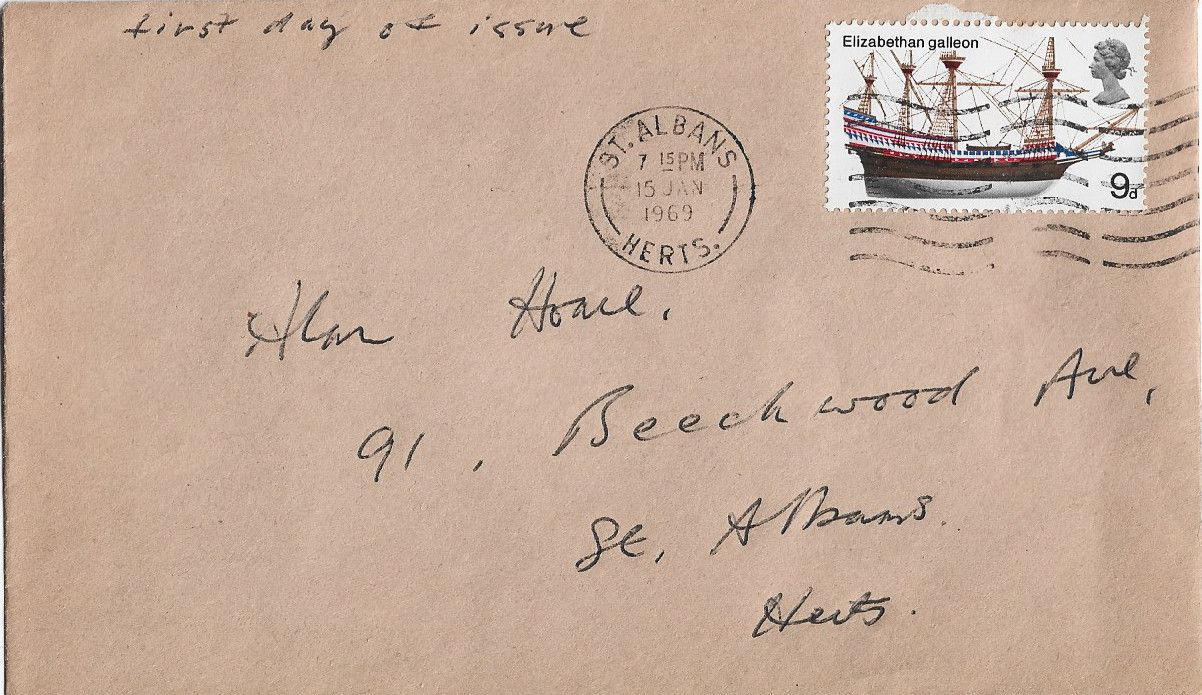 first day of issue
Elizabethan galleon
9d
ST. ALBANS
7 15PM
15 JAN
1969
HERTS.
Alan Hoare,
91, Beechwood Ave,
St, Albans.
Herts.